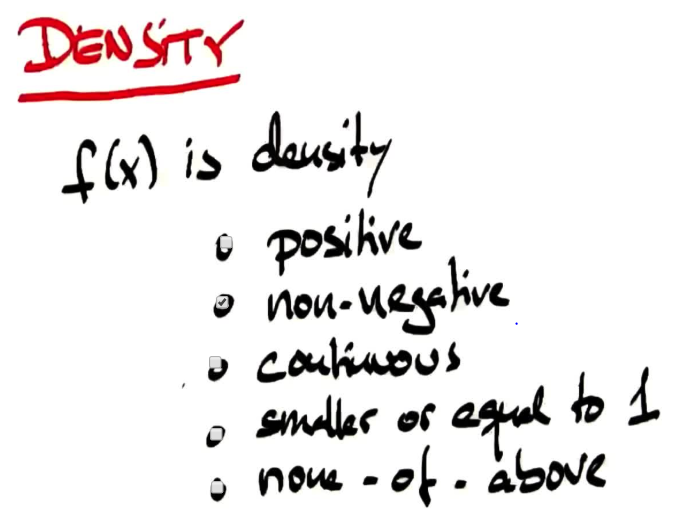 DENSITY
f(x) is density
positive
non-negative
continuous
smaller or equal to 1
none-of-above